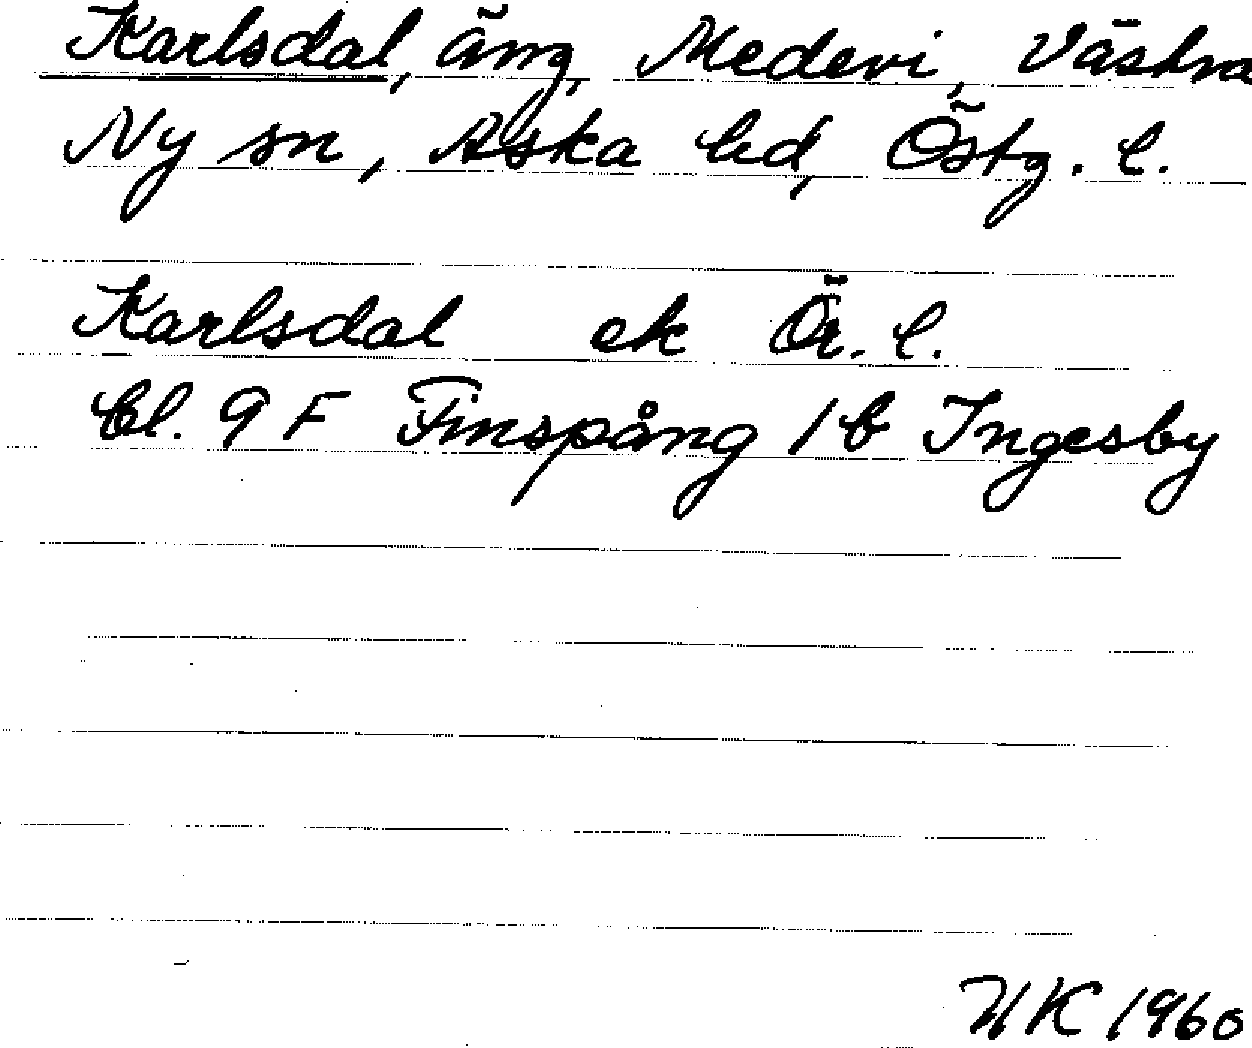 Karlsdal, äng, Medevi, Västra
Ny sn, Aska hd, Östg. l.
Karlsdal ek Ör. l.
Bl. 9 F Finspång 1 b Ingesby
HK 1960